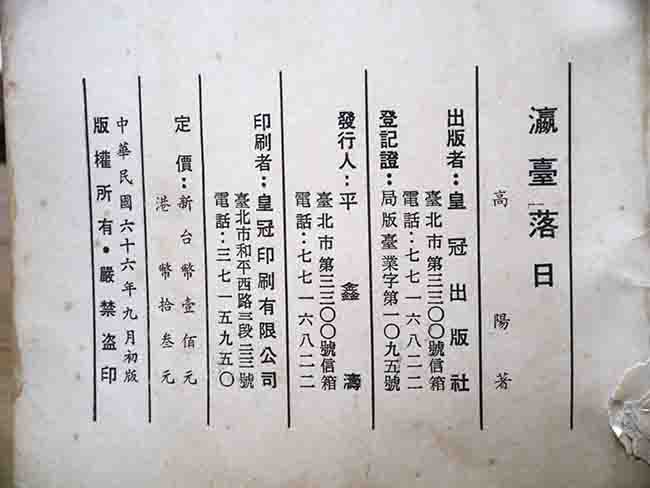 瀛臺落日
高陽著
出版者：皇冠出版社
臺北市第三三〇〇號信箱
電話：七七一六八二二
登記證：局版臺業字第一〇九五號
發行人：平鑫濤
臺北市第三三〇〇號信箱
電話：七七一六八二二
印刷者：皇冠印刷有限公司
臺北市和平西路三段二三號
電話：三七一五九五〇
定價：新台幣壹佰元
港幣拾叁元
中華民國六十六年九月初版
版權所有•嚴禁盜印